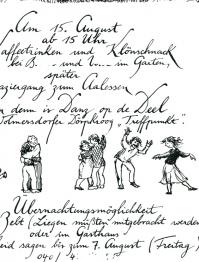 Am 15. August
ab 15 Uhr
affeetrinken und Klönschnack
bei B. und U... im Garten,
später
aziergang zum Aalessen
denn is Danz op de Deel
olmersdorfer Dörpkroog „Treffpunkt"
Übernachtungsmöglichkeit
Zelt (Liegen müßten mitgebracht werden
oder im Gasthaus
eid sagen bis zum 7. August (Freitag)
040 / 4